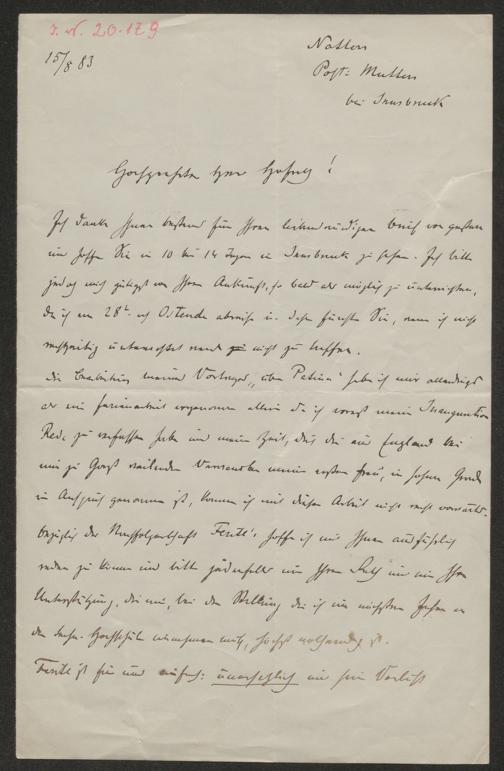 I. N. 20.179
15/8 83
Natters
Post: Mutters
bei Innsbruck
Hochgeehrter Herr Hofrath!
Ich danke Ihnen bestens für Ihren liebenswürdigen Brief von gestern
und hoffe Sie in 10 bis 14 Tagen in Innsbruck zu sehen. Ich bitte
jedoch mich gütigst von Ihrer Ankunft, so bald als möglich zu unterrichten,
da ich am 28t. nach Ostende abreise u. daher fürchte Sie, wenn ich nicht
rechtzeitig unterrichtet werde nicht zu treffen.
Die Bearbeitung meines Vortrages „über Petina" habe ich mir allerdings
als eine Ferienarbeit vorgenommen allein da ich vorerst meine Inaugurations
Rede zu verfassen habe und meine Zeit, durch die aus England bei
mir zu Gast weilenden Verwandten meiner ersten Frau, in hohem Grade
in Anspruch genommen ist, komme ich mit dieser Arbeit nicht recht vorwärts.
Bezüglich der Nachfolgerschaft Ferstl's hoffe ich mit Ihnen ausführlich
reden zu können und bitte jedenfalls um Ihren Rath und um Ihre
Unterstützung, die mir, bei der Stellung die ich im nächsten Jahre an
der techn. Hochschule einnehmen muß, höchst nothwendig ist.
Ferstl ist für uns einfach: unersetzlich und sein Verlust